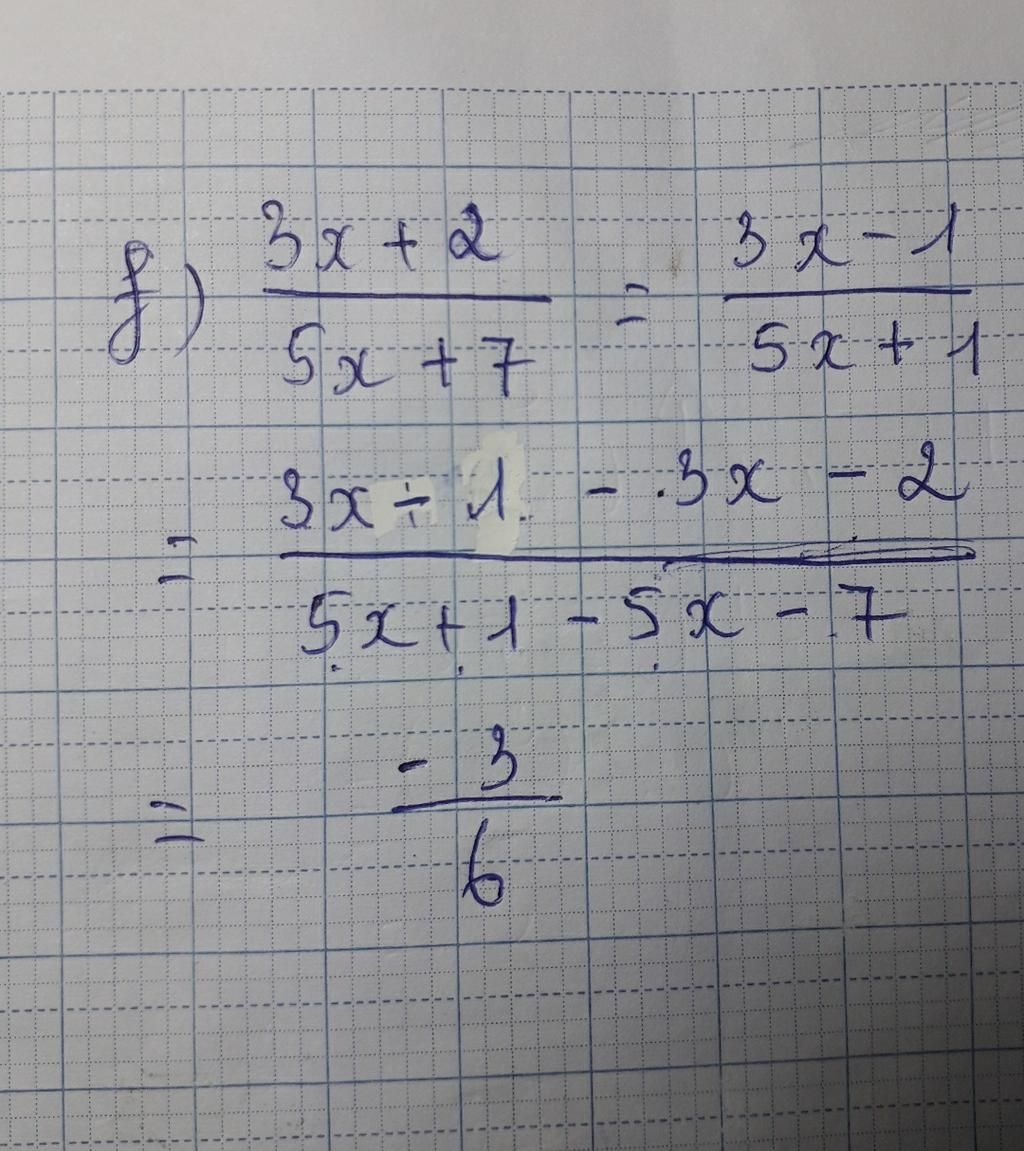 f) (3x + 2)/(5x + 7) = (3x - 1)/(5x + 1)
= (3x ÷ 1 - 3x - 2)/(5x + 1 - 5x - 7)
= (- 3)/6